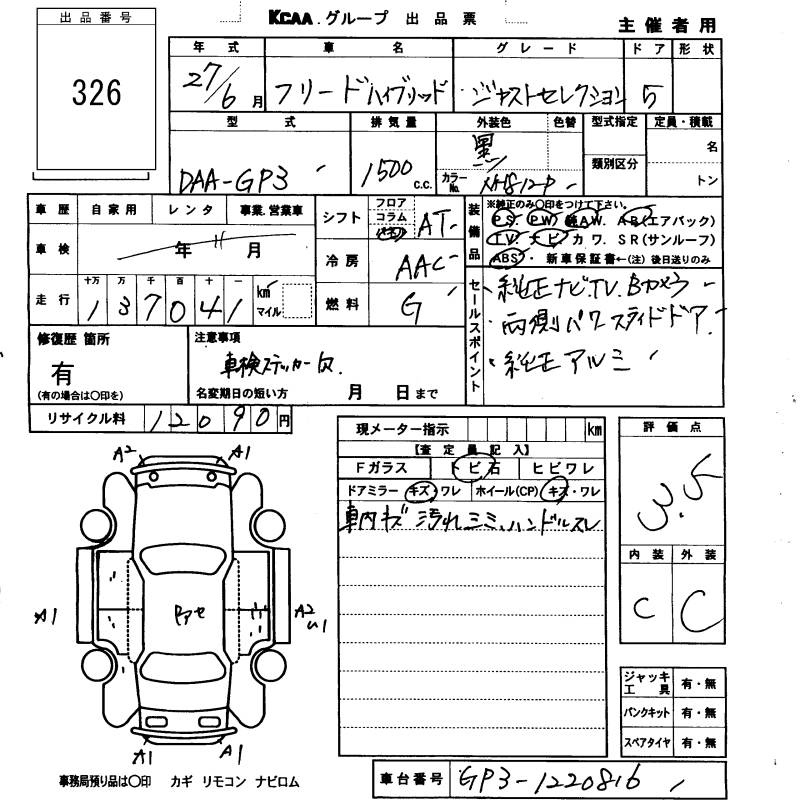 出品番号
326
KCAA.グループ 出品票
主催者用
年式 車名 グレード ドア 形状
27/6月 フリードハイブリッド ジャストセレクション 5
型式 排気量 外装色 色替 型式指定 定員・積載
DAA-GP3 1500 C.C. 黒 カラーNo. NH812P 類別区分 名
トン
車歴 自家用 レンタ 事業.営業車
シフト フロア コラム AT
車検 年 月
冷房 AAC
走行 十万 万 千 百 十 一
137041 km マイル
燃料 G
装備品
※純正のみ〇印をつけて下さい。
PS. PW. 純AW. AB(エアバック)
TV. ナビ カワ. SR(サンルーフ)
ABS・ 新車保証書←(注)後日送りのみ
セールスポイント
純正ナビ.TV.Bカメラ
両側パワースライドドア.
純正アルミ
修復歴 箇所
有
(有の場合は〇印を)
注意事項
車検ステッカー
名変期日の短い方 月 日まで
リサイクル料 12090円
現メーター指示 km
【査定員記入】
Fガラス トビ石 ヒビワレ
ドアミラー キズ・ワレ ホイール(CP) キズ・ワレ
車内キズ 汚れ シミ、ハンドルスレ
評価点
3.5
内装 外装
C C
A2 A1
A1
A2
A1 A1
ジャッキ 工具 有・無
パンクキット 有・無
スペアタイヤ 有・無
事務局預り品は〇印 カギ リモコン ナビロム
車台番号 GP3-1220816